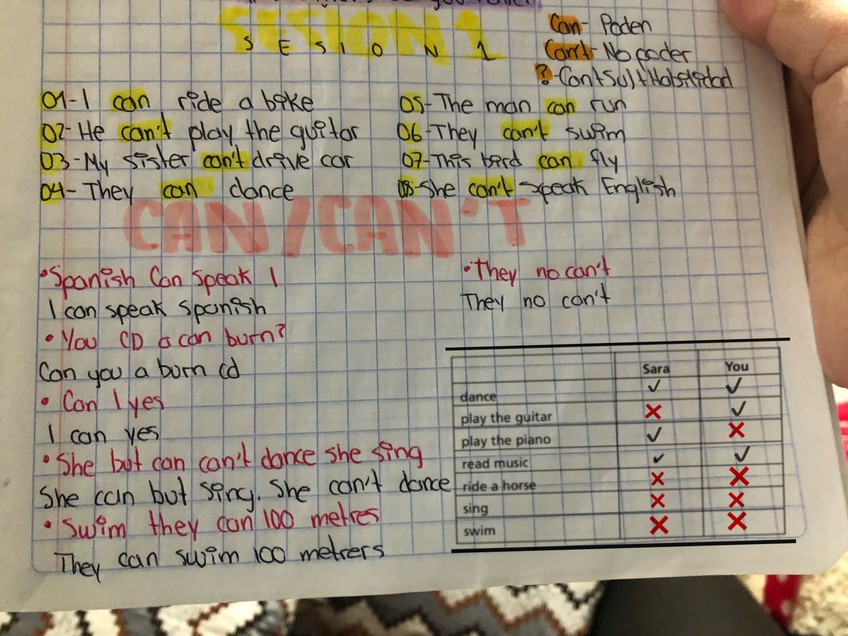 SESION 1
S E S I O N 1
Can- Poden
Can't- No poder
?-
01-I can ride a bike
02-He can't play the guitar
03-My sister can't drive car
04-They can dance
05-The man can run
06-They can't swim
07-This bird can fly
08-She can't speak English
CAN/CAN'T
•Spanish Can Speak I
I can speak Spanish
•You CD a can burn?
Can you a burn cd
•Can I yes
I can yes
•She but can can't dance she sing
She can but sing. She can't dance
•Swim they can 100 metres
They can swim 100 metrers
•They no can't
They no can't
Sara You
dance ✓ ✓
play the guitar X ✓
play the piano ✓ X
read music ✓ ✓
ride a horse X X
sing X X
swim X X